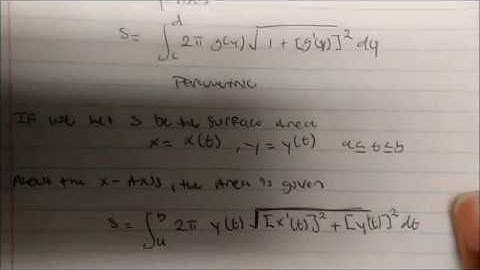 S = ∫_c^d 2π g(y) √(1 + [g'(y)]²) dy
PARAMETRIC
IF we let S be the Surface Area
x = x(t), y = y(t) a ≤ t ≤ b
About the x-Axis, the Area is given
S = ∫_a^b 2π y(t) √([x'(t)]² + [y'(t)]²) dt